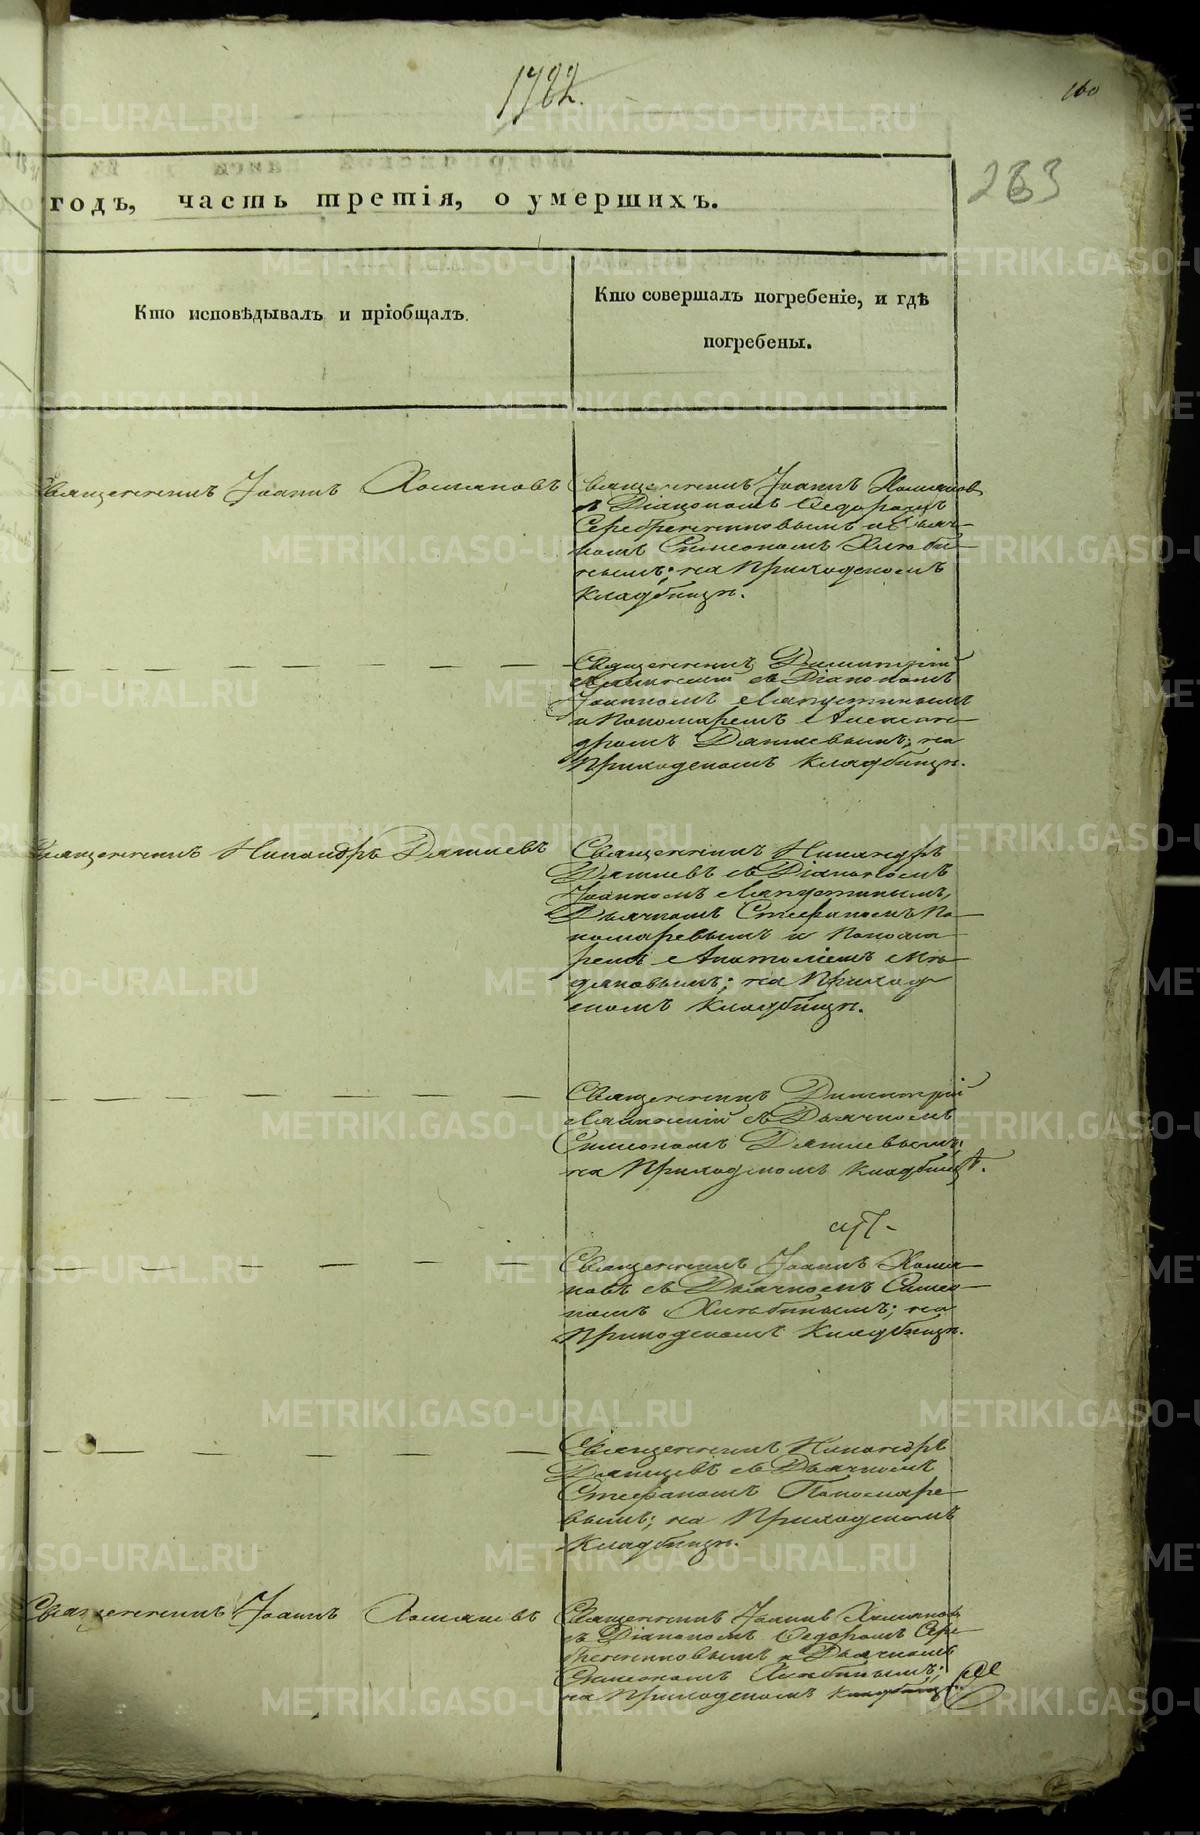 1782.
160
263
годъ, часть третія, о умершихъ.
Кто исповѣдывалъ и пріобщалъ.
Кто совершалъ погребеніе, и гдѣ
погребены.
Священникъ Іоаннъ Хомяковъ
Священникъ Іоаннъ Хомяков
съ Діакономъ Ѳедоромъ
Серебренниковымъ и Дьяч-
комъ Симеономъ Хлѣби-
нымъ; на Приходскомъ
Кладбищѣ.
Священникъ Димитрій
съ Діакономъ
Іоанномъ Лапустинымъ
и Пономаремъ Алексан-
дромъ Дягилевымъ; на
Приходскомъ Кладбищѣ.
Священникъ Никандръ Дягилевъ
Священникъ Никандръ
Дягилевъ съ Діакономъ
Іоанномъ Лапустинымъ,
Дьячкомъ Стефаномъ По-
номаревымъ и Понома-
ремъ Анатоліемъ
на Приход-
скомъ Кладбищѣ.
Священникъ Димитрій
съ Дьячкомъ
Симеономъ Дягилевымъ;
на Приходскомъ Кладбищѣ.
Священникъ Іоаннъ Хомя-
ковъ съ Дьячкомъ Симео-
номъ Хлѣбинымъ; на
Приходскомъ Кладбищѣ.
Священникъ Никандръ
Дягилевъ съ Дьячкомъ
Стефаномъ Пономаре-
вымъ; на Приходскомъ
Кладбищѣ.
Священникъ Іоаннъ Хомяковъ
Священникъ Іоаннъ Хомяковъ
съ Діакономъ Ѳедоромъ Сере-
бренниковымъ и Дьячкомъ
Симеономъ Хлѣбинымъ;
на Приходскомъ Кладбищѣ
METRIKI.GASO-URAL.RU